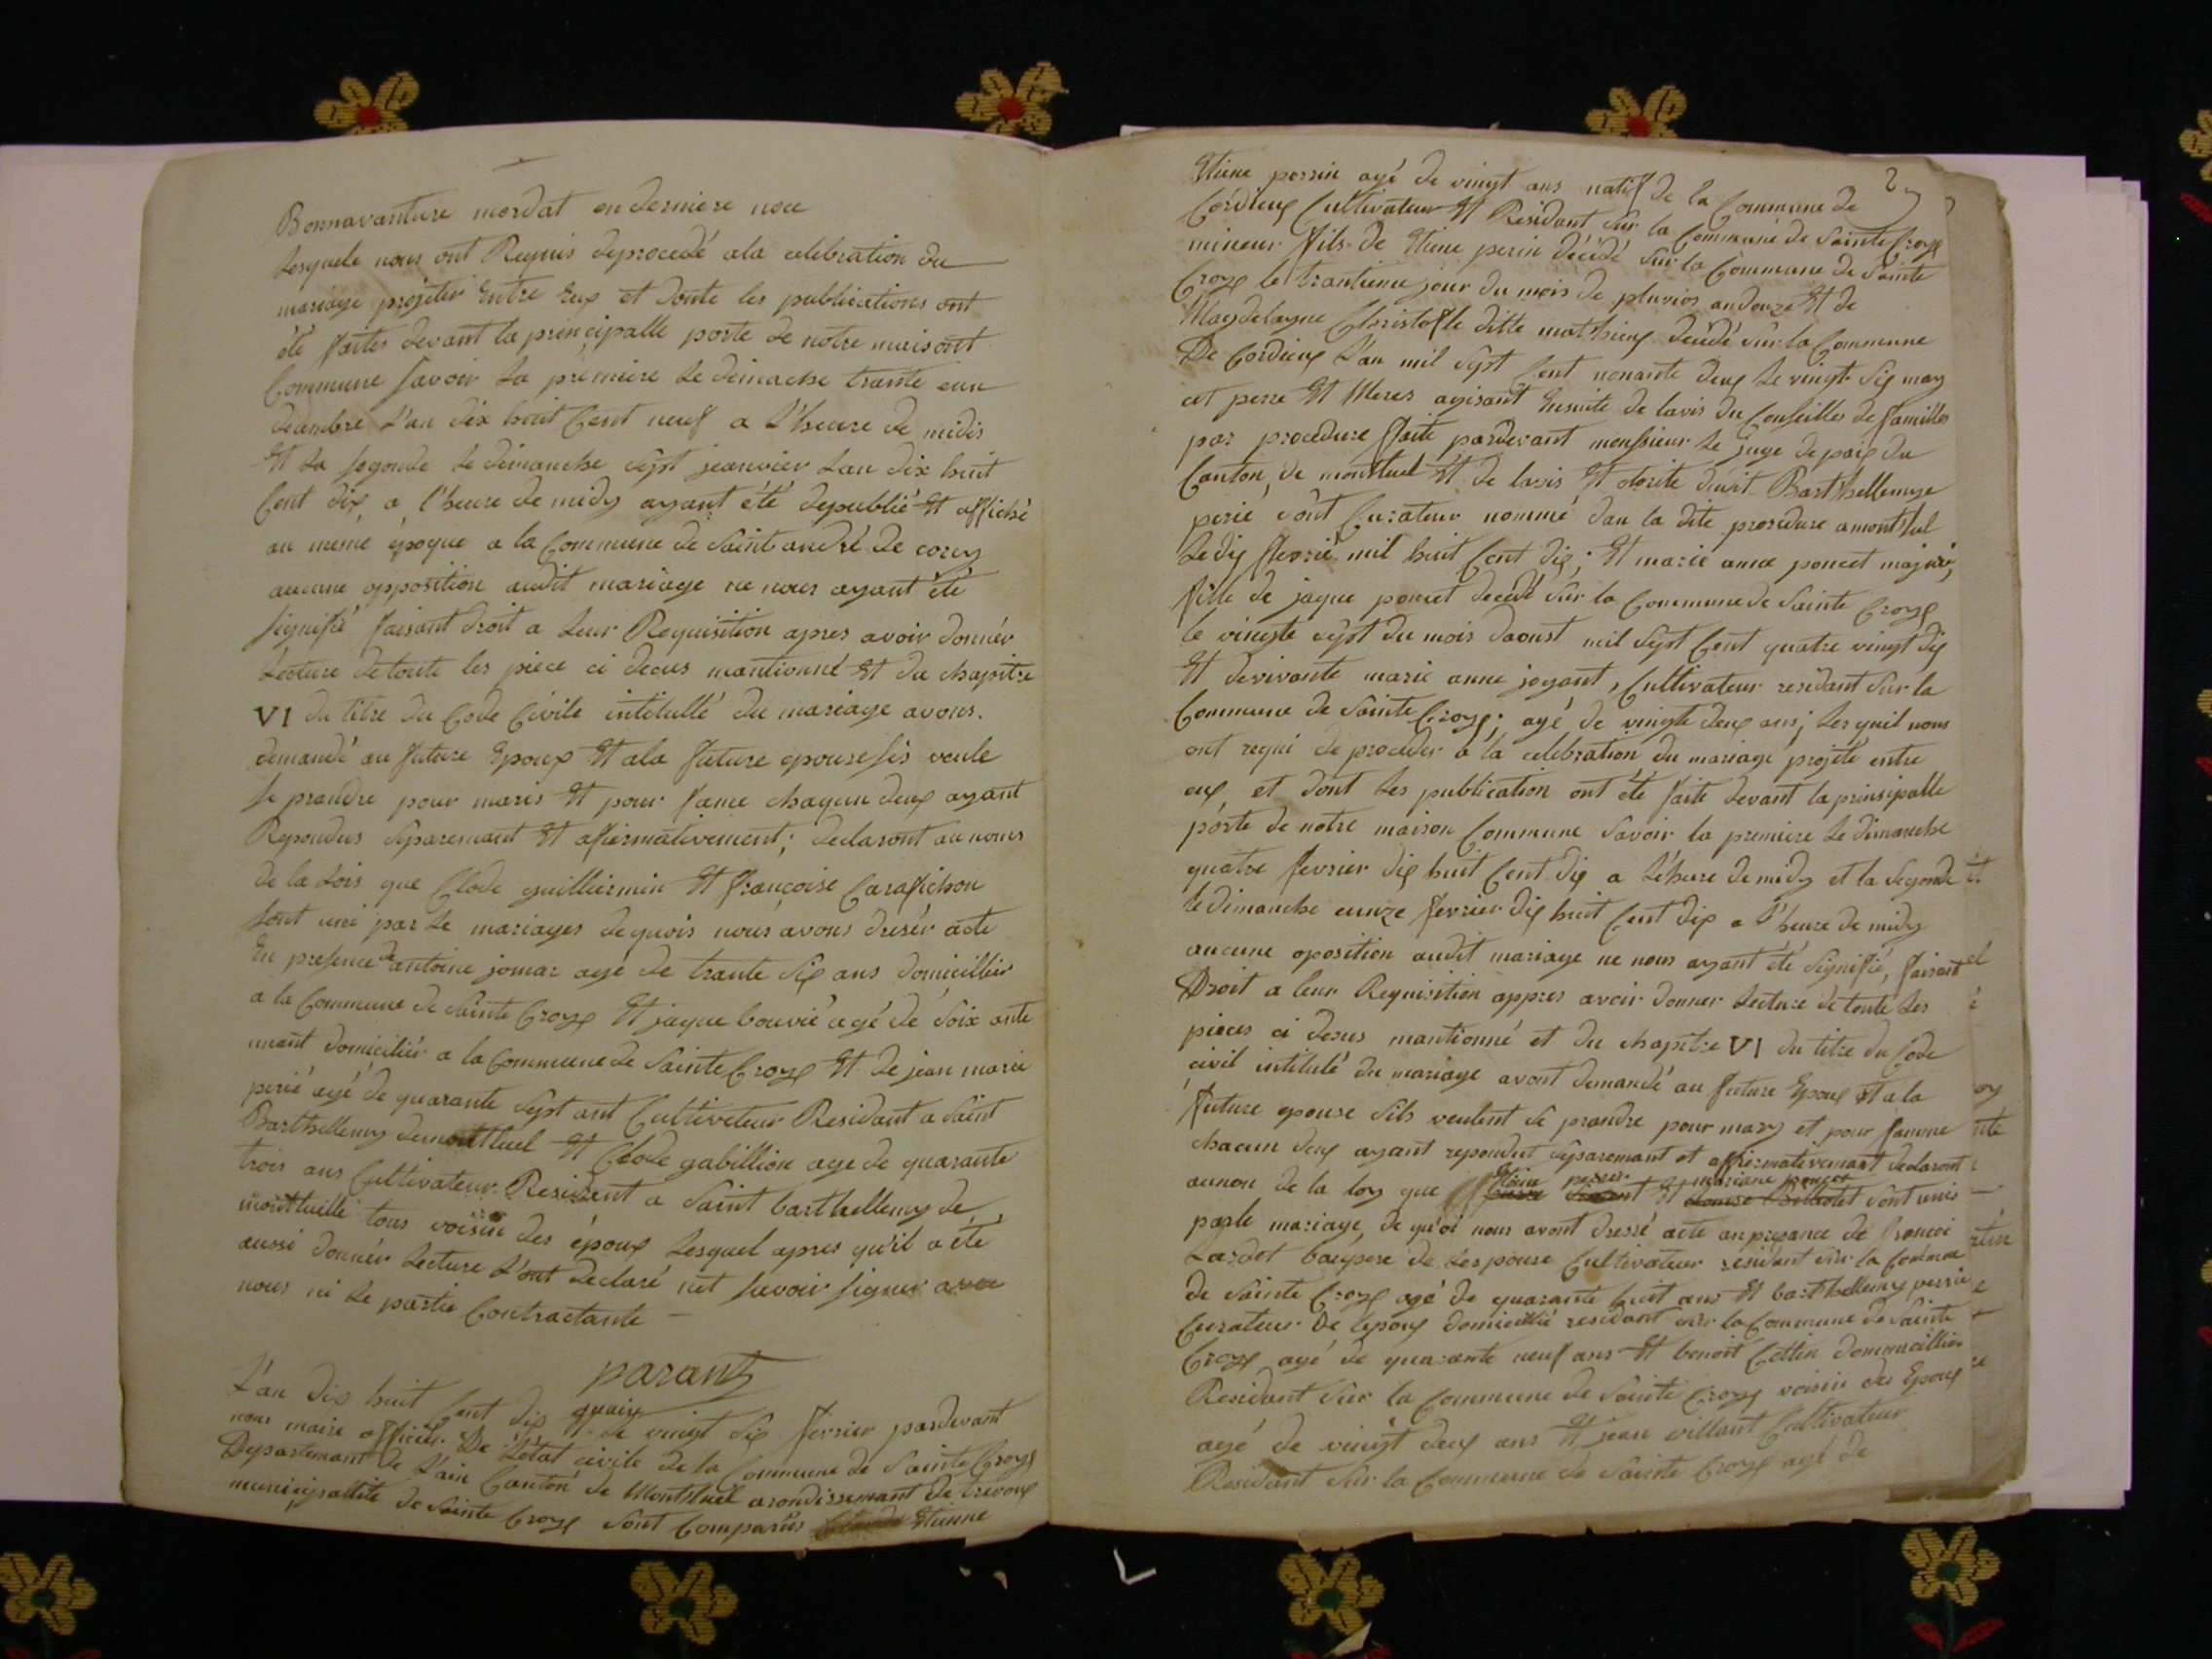 Bonnavanture mordat en derniere noce
Lesquele nous ont Requis deprocedé ala celebration du
mariage projetér Entre Eux et Donte les publications ont
été faites devant la principalle porte de notre maisont
Commune Savoir La premiere Le dimache trante eun
decembre L'an dix huit Cent neuf a L'heure de midis
Et La Segonde Le dimanche Sept jeanvier Lan dix huit
Cent dix, a l'heure de midy ayant été depublié Et affiché
au meme époque a la Commune de Saint andré de corcy
aucune opposition audit mariage ne nous ayant été
Signifié faisant droit a Leur Requisition apres avoir donnér
Lecture de toute les piece ci decus mantionné Et du chapitre
VI du titre du Code Civile intitullé du mariage avons.
demandé au future Epoux Et ala future epouse sis veule
Se prandre pour maris Et pour fame chaqun deux ayant
Repondus Separemant Et affirmativement; declaront au noms
de la Lois que Clode guilliermin Et françoise Carafichon
Sont uni par Le mariages de quois nous avons dresér acte
En presence de antoine jomar agé de trante Six ans domicillier
a la Commune de Sainte Croyx Et jaque bouvié agé de Soix ante
unant domiciliér a la Commune de Sainte Croyx Et de jean marie
perié agé de quarante Sept ant Cultiveteur Residant a Saint
Barthellemy demontluel Et Clode gabillion age de quarante
trois ans Cultivateur Resident a Saint barthellemy de
montluelle tous voisin des époux Lesquel apres qu'il a été
aussi donnér Lecture L'ont declaré net Savoir Signer avec
nous ni Le partie Contractante —
parant
L'an dix huit Cent dix Le vingt Six fevrier pardevant
nous maire officiel De L'état civile de la Commune de Sainte Croyx
Departemant de L'ain Canton de Montluel arondissemant de trevoux
municipallité de Sainte Croyx Sont Comparûs Etienne
Etiene perrin agé de vingt ans natif de la Commune de
Cordieux Cultivateur Et Residant Sur la Commune de Sainte Croyx
mineur fils de Etiene perin décédé Sur la Commune de Sainte
Croyx le trantieme jour du mois de pluvios andouze Et de
Magdelayne Christofle ditte matthieux decédé sur la Commune
De Cordieux L'an mil Sept Cent nonante deux Le vingt Six may
cet perre Et Meres agisant Ensuite de lavis du Conseilles de familles
par procedure faite pardevant monssieur Le juge de paix du
Canton, de montluel Et de lavis Et Barthellemye
perié Sont Curateur nommé dan la dite procedure amontluel
Le dix fevrié mil huit Cent dix; Et marie anne poncet majeur,
fille de jaque poncet decedé Sur la Commune de Sainte Croyx
le vingte Sept du mois daoust mil Sept Cent quatre vingt dix
Et devivante marie anne joyant, Cultivateur residant Sur la
Commune de Sainte Croyx; agé de vingte deux ans; Lesquil nous
ont requi de proceder a la celebration du mariage projété entre
eux et dont Les publication ont été faite devant la prinsipalle
porte de notre maison Commune Savoir la premiere Le dimanche
quatre fevrier dix huit Cent dix a Lé'heure de midy et la Segonde
Le dimanche eunze fevrier dix huit Cent dix a L'heure de midy
aucune oposition audit mariage ne nous ayant été Signifié, faisant
Droit a leur Requisition appres avoir donner Lecture de toute Les
pieces ci desus mantionné et du chapitre VI du titre du Code
civil intitulé du mariage avont demandé au future Epoux Et a la
future epouse Sils veulent Se prandre pour mary et pour famme
chacun deux ayant repondut Separemant et affirmativemant declaront
aunon de la loy que Etiene perrin Et mariane poncet Sont unis
parle mariage, de qu'oi nous avont dressé acte anpresance de francoi
Lardet baupere de Lespouse Cultivateur residant sur la Commune
de Sainte Croyx agé de quarante huit ans Et barthellemy perrié
Curateur De Lepoux domicillié residant sur la Commune de Sainte
Croyx agé de quarante neuf ans Et benoit Cottin dommicillier
Residant Sur la Commune de Sainte Croyx voisin des Epoux
agé de vingt deux ans Et jean villant Cultivateur
Residant Sur la Commune de Sainte Croyx agé de